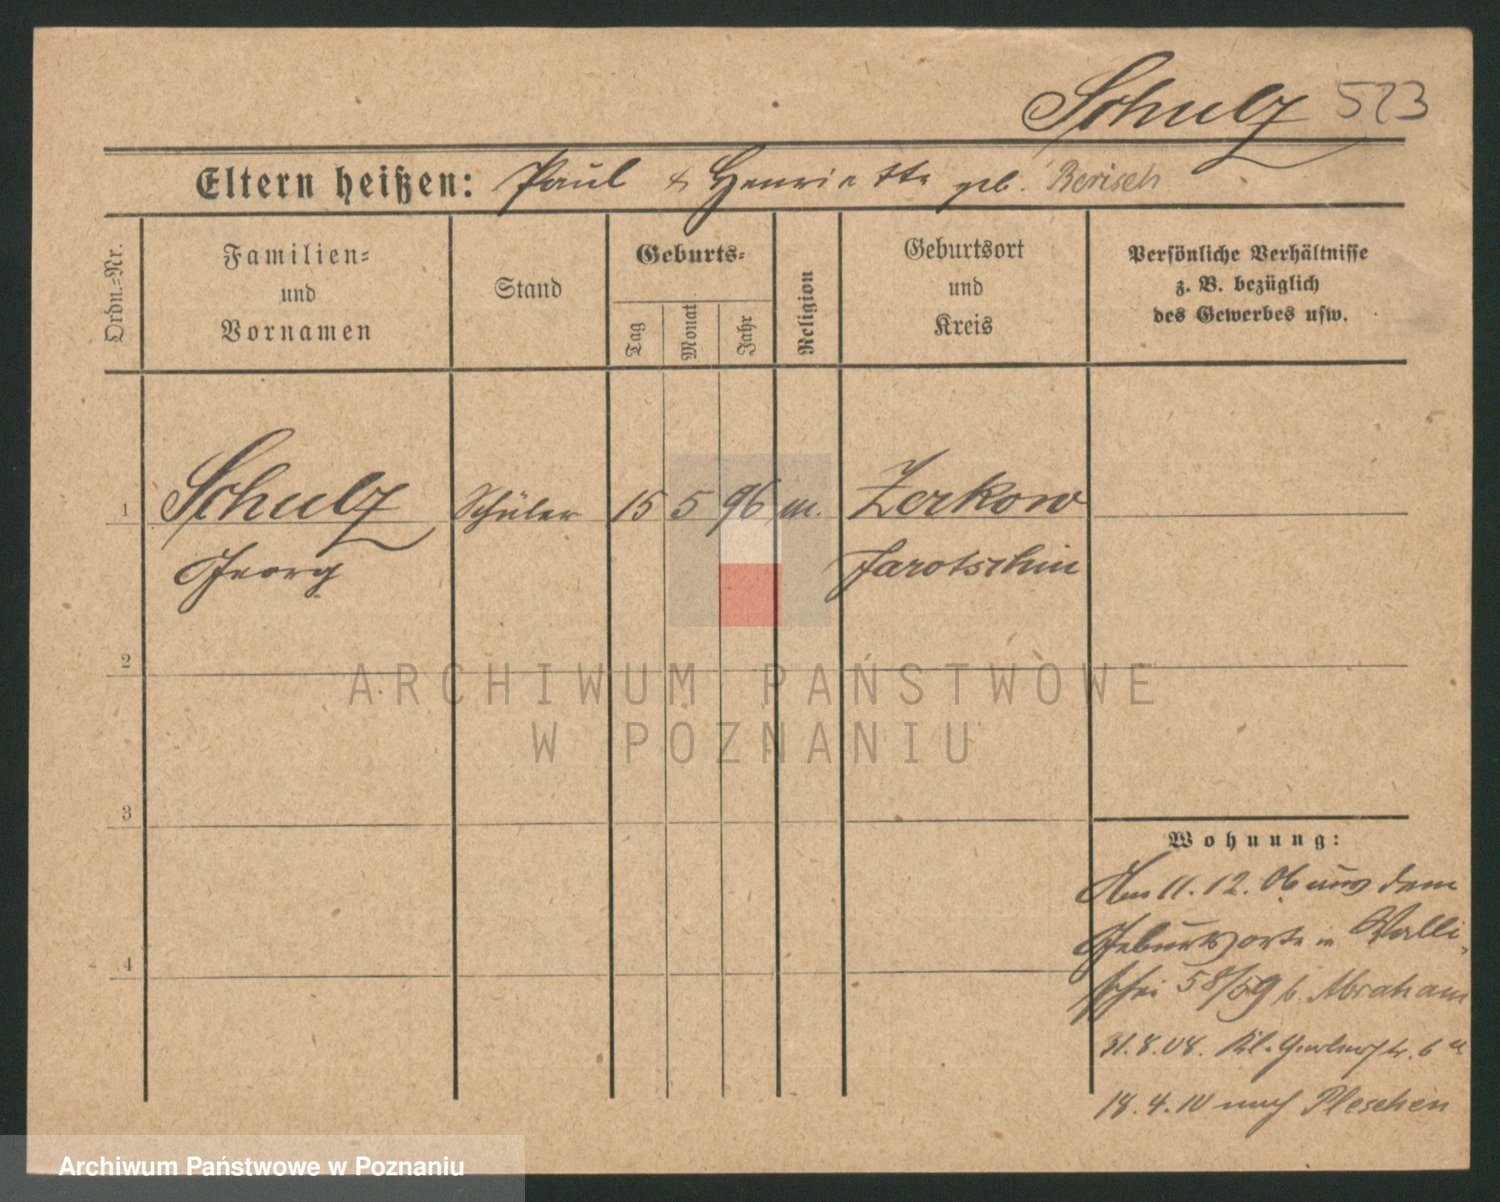 Schulz 523
Eltern heißen: Paul & Henriette geb. Berisch
Ordn.=Nr.
Familien=
und
Vornamen
Stand
Geburts=
Tag
Monat
Jahr
Religion
Geburtsort
und
Kreis
Persönliche Verhältnisse
z. B. bezüglich
des Gewerbes usw.
1 Schulz Schüler 15 5 96 m. Zerkow
Georg Jarotschin
2
ARCHIWUM PAŃSTWOWE
W POZNANIU
3
Wohnung:
Am 11. 12. 06 aus dem
Geburtsorte in Walli-
schei 58/59 b. Abraham
4
31.8.08. Kl. Gerberstr. 6
18.4.10 nach Pleschen
Archiwum Państwowe w Poznaniu